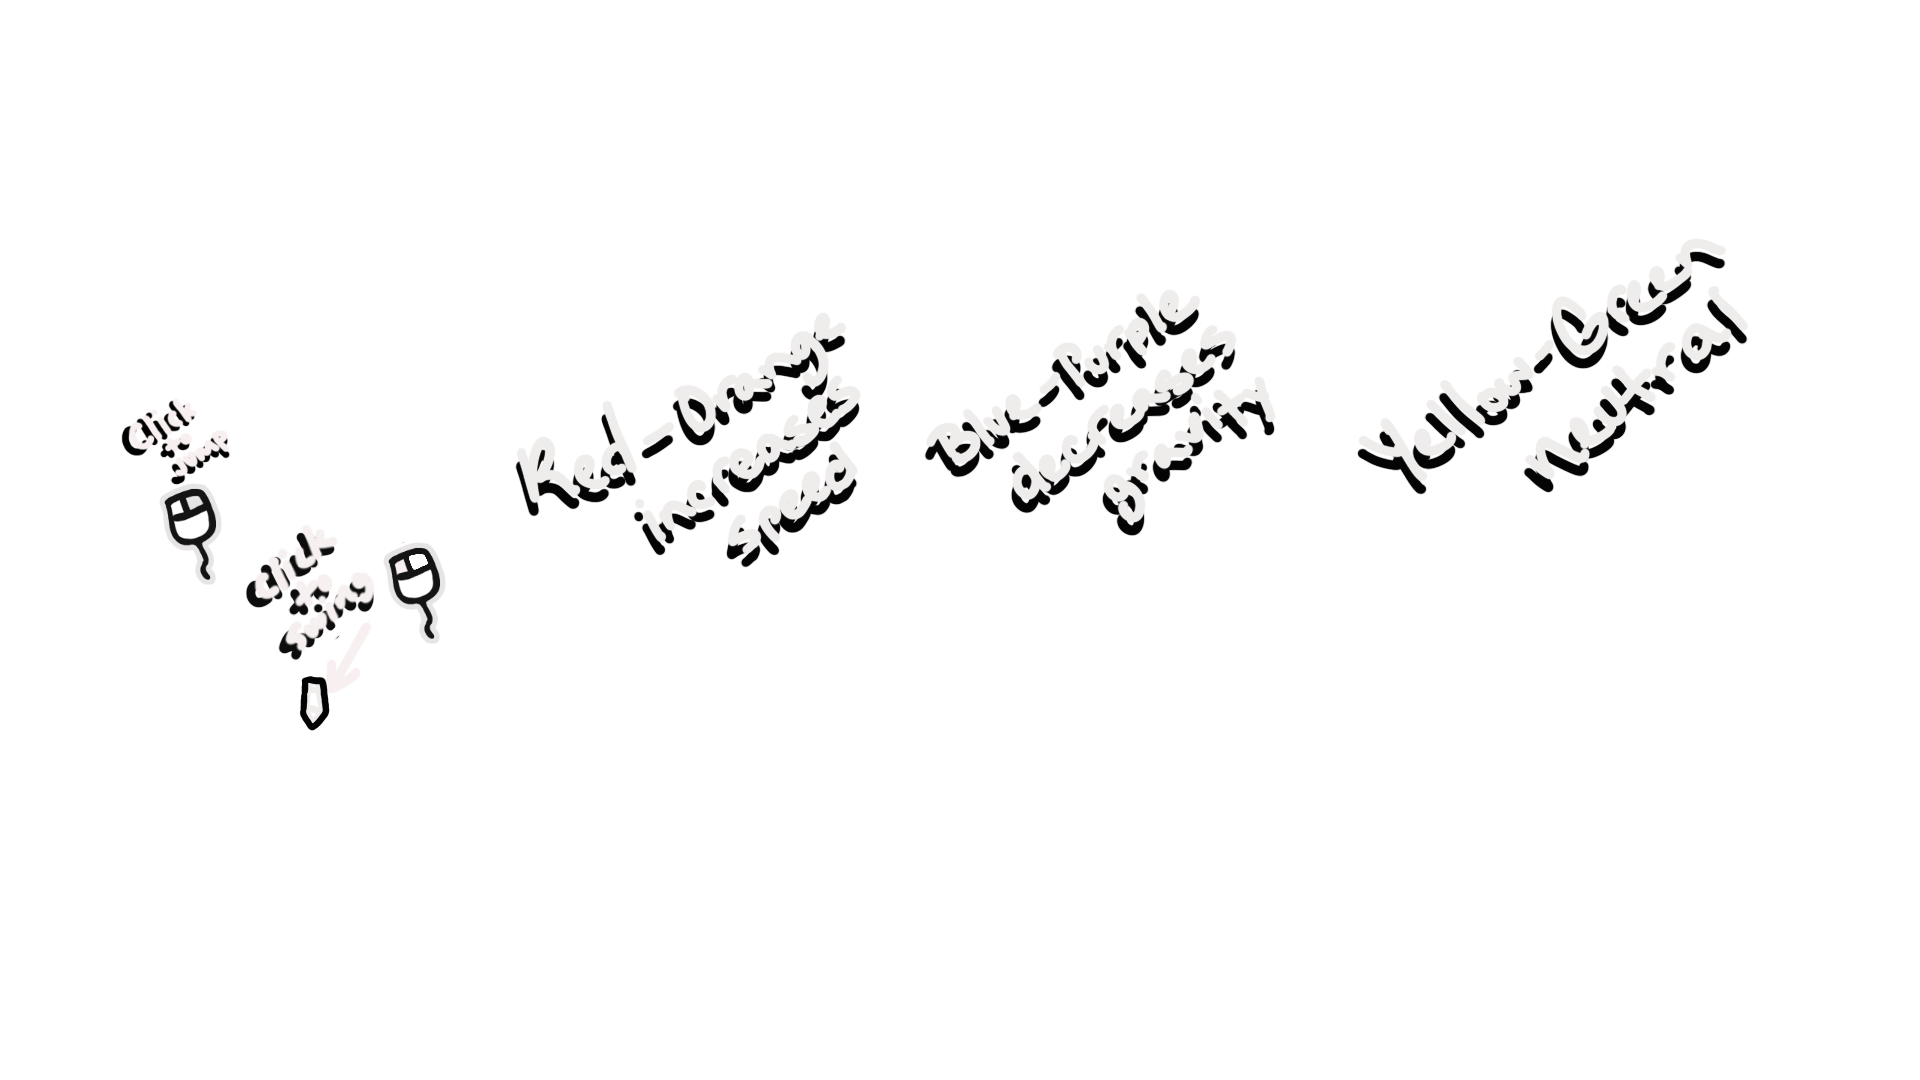 Click
to
jump
Click
to
swing
Red-Orange
increases
speed
Blue-Purple
decreases
gravity
Yellow-Green
neutral